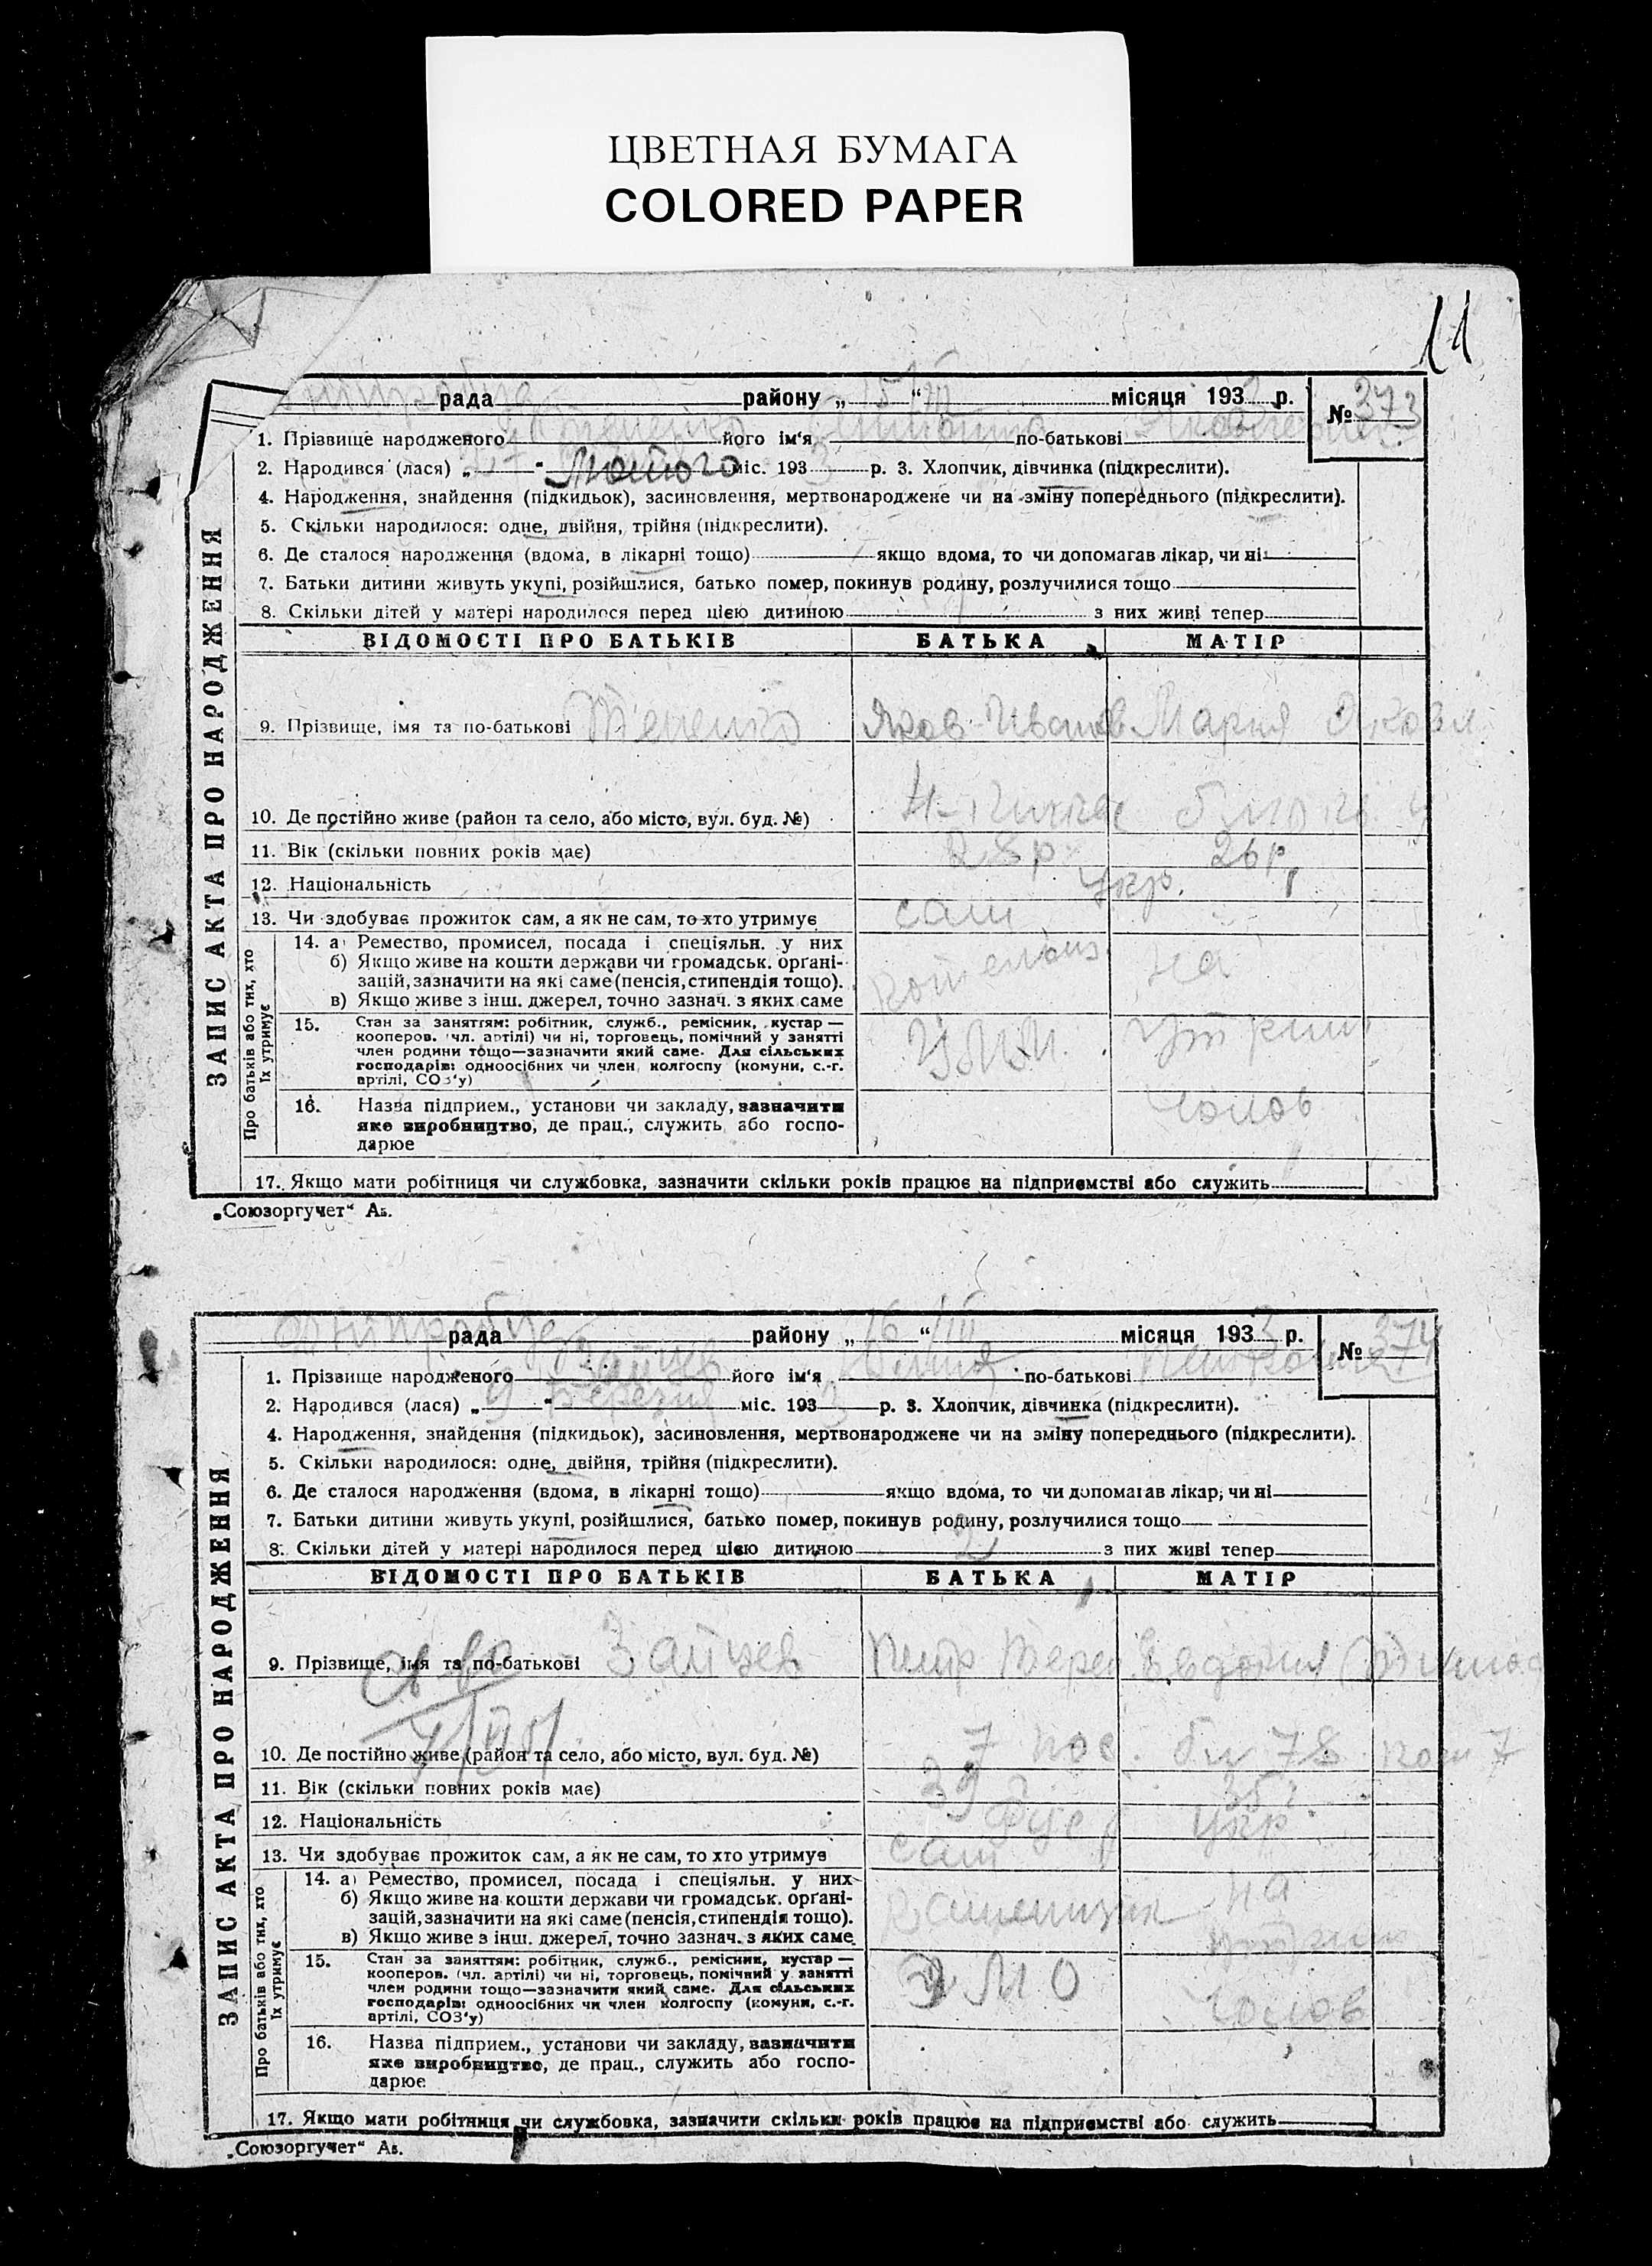 ЦВЕТНАЯ БУМАГА
COLORED PAPER
11
рада району „ 15/III “ місяця 1933 р. № 373
1. Прізвище народженого його ім'я по-батькові
2. Народився (лася) „ 27 “ Лютого міс. 1933 р. 3. Хлопчик, дівчинка (підкреслити).
4. Народження, знайдення (підкидьок), засиновлення, мертвонароджене чи на зміну попереднього (підкреслити).
5. Скільки народилося: одне, двійня, трійня (підкреслити).
6. Де сталося народження (вдома, в лікарні тощо) якщо вдома, то чи допомагав лікар, чи ні
7. Батьки дитини живуть укупі, розійшлися, батько помер, покинув родину, розлучилися тощо
8. Скільки дітей у матері народилося перед цією дитиною з них живі тепер
ЗАПИС АКТА ПРО НАРОДЖЕННЯ
ВІДОМОСТІ ПРО БАТЬКІВ БАТЬКА МАТІР
9. Прізвище, імя та по-батькові Яков Иванов Мария
10. Де постійно живе (район та село, або місто, вул. буд. №)
11. Вік (скільки повних років має) 28 р. 26 р.
12. Національність Укр.
13. Чи здобуває прожиток сам, а як не сам, то хто утримує сам
Про батьків або тих, хто їх утримує
14. а) Ремество, промисел, посада і спеціяльн. у них на
б) Якщо живе на кошти держави чи громадськ. орґані-
зацій, зазначити на які саме (пенсія, стипендія тощо).
в) Якщо живе з інш. джерел, точно зазнач. з яких саме
15. Стан за заняттям: робітник, служб., ремісник, кустар —
кооперов. (чл. артілі) чи ні, торговець, помічний у занятті
член родини тощо—зазначити який саме. Для сільських
господарів: одноосібних чи член колгоспу (комуни, с.-г.
артілі, СОЗ'у)
16. Назва підприєм., установи чи закладу, зазначити Чолов
яке виробництво, де прац., служить або госпо-
дарює
17. Якщо мати робітниця чи службовка, зазначити скільки років працює на підприємстві або служить
„Союзоргучет“ Ав.
рада району „ 16/III “ місяця 1933 р. № 374
1. Прізвище народженого Зайцев його ім'я по-батькові
2. Народився (лася) „ 9 “ Березня міс. 1933 р. 3. Хлопчик, дівчинка (підкреслити).
4. Народження, знайдення (підкидьок), засиновлення, мертвонароджене чи на зміну попереднього (підкреслити).
5. Скільки народилося: одне, двійня, трійня (підкреслити).
6. Де сталося народження (вдома, в лікарні тощо) якщо вдома, то чи допомагав лікар, чи ні
7. Батьки дитини живуть укупі, розійшлися, батько помер, покинув родину, розлучилися тощо
8. Скільки дітей у матері народилося перед цією дитиною 2 з них живі тепер
ЗАПИС АКТА ПРО НАРОДЖЕННЯ
ВІДОМОСТІ ПРО БАТЬКІВ БАТЬКА МАТІР
9. Прізвище, імя та по-батькові Зайцев Петр Евдокия
10. Де постійно живе (район та село, або місто, вул. буд. №) 7 пос. бл 78 ком 7
11. Вік (скільки повних років має) 39
12. Національність Рус Укр
13. Чи здобуває прожиток сам, а як не сам, то хто утримує сам
Про батьків або тих, хто їх утримує
14. а) Ремество, промисел, посада і спеціяльн. у них на
б) Якщо живе на кошти держави чи громадськ. орґані-
зацій, зазначити на які саме (пенсія, стипендія тощо).
в) Якщо живе з інш. джерел, точно зазнач. з яких саме
15. Стан за заняттям: робітник, служб., ремісник, кустар —
кооперов. (чл. артілі) чи ні, торговець, помічний у занятті
член родини тощо—зазначити який саме. Для сільських
господарів: одноосібних чи член колгоспу (комуни, с.-г.
артілі, СОЗ'у) Чолов
16. Назва підприєм., установи чи закладу, зазначити
яке виробництво, де прац., служить або госпо-
дарює
17. Якщо мати робітниця чи службовка, зазначити скільки років працює на підприємстві або служить
„Союзоргучет“ Ав.